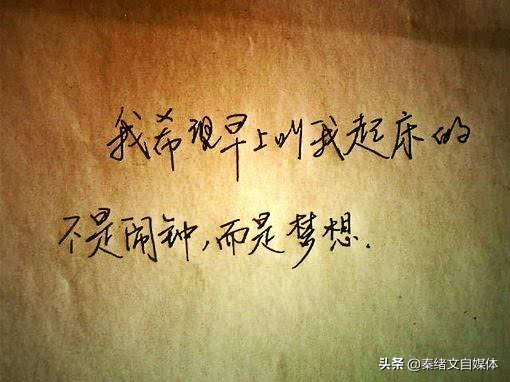 我希现早上叫我起床的
不是闹钟，而是梦想.
头条 @秦绪文自媒体